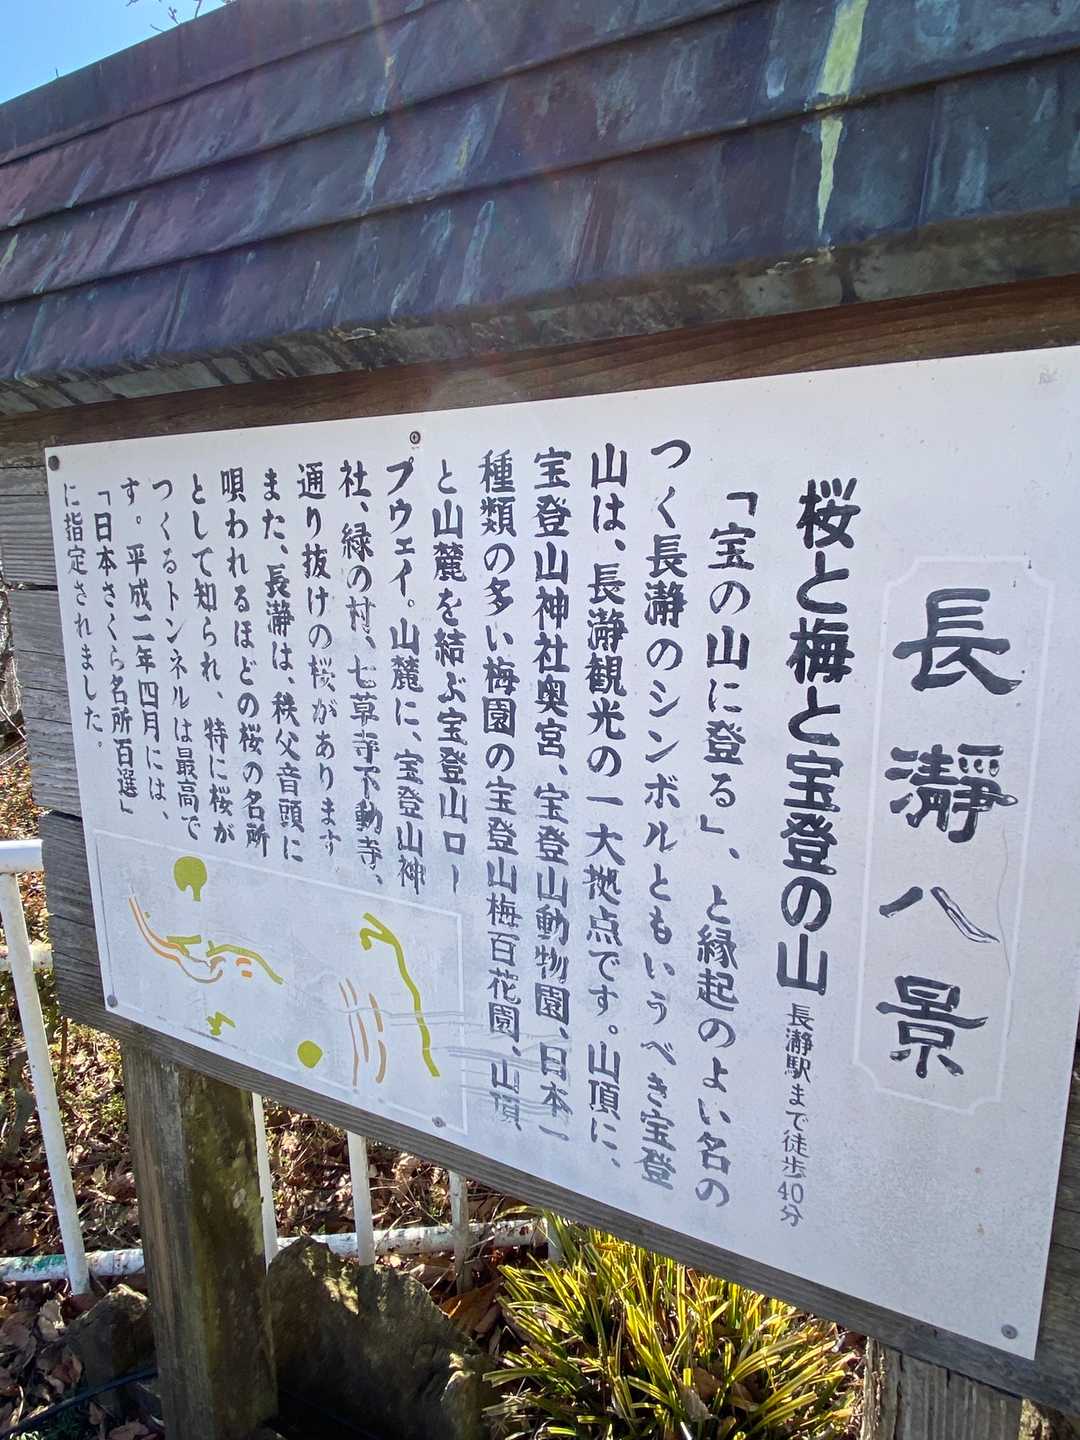 長瀞八景
桜と梅と宝登の山
長瀞駅まで徒歩40分
「宝の山に登る」、と縁起のよい名の
つく長瀞のシンボルともいうべき宝登
山は、長瀞観光の一大拠点です。山頂に、
宝登山神社奥宮、宝登山動物園、日本一
種類の多い梅園の宝登山梅百花園、山頂
と山麓を結ぶ宝登山ロー
プウェイ。山麓に、宝登山神
社、緑の村、七草寺不動寺、
通り抜けの桜があります
また、長瀞は、秩父音頭に
唄われるほどの桜の名所
として知られ、特に桜が
つくるトンネルは最高で
す。平成二年四月には、
「日本さくら名所百選」
に指定されました。